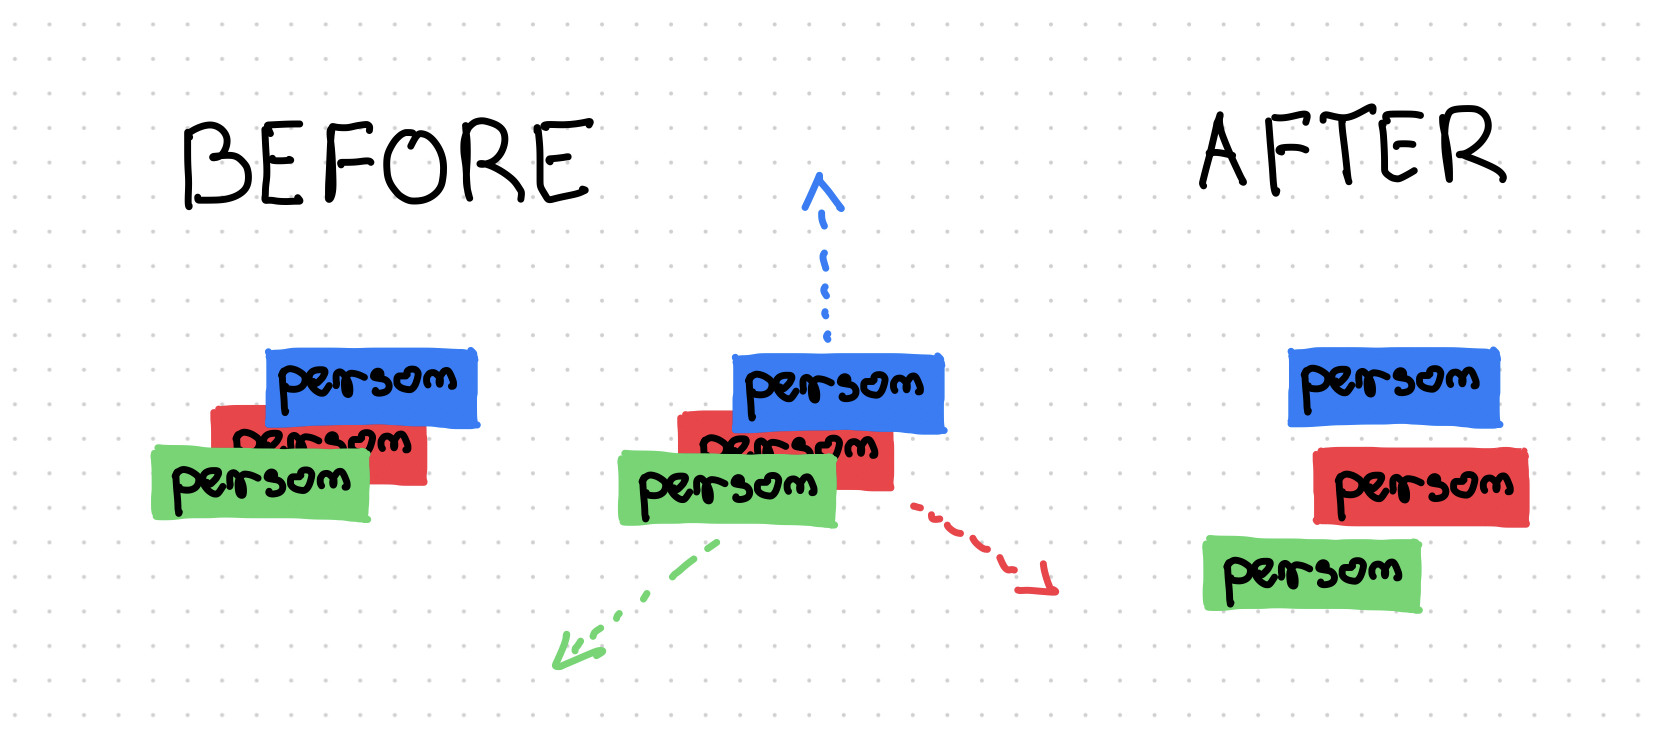 BEFORE
AFTER
person
person
person
person
person
person
person
person
person